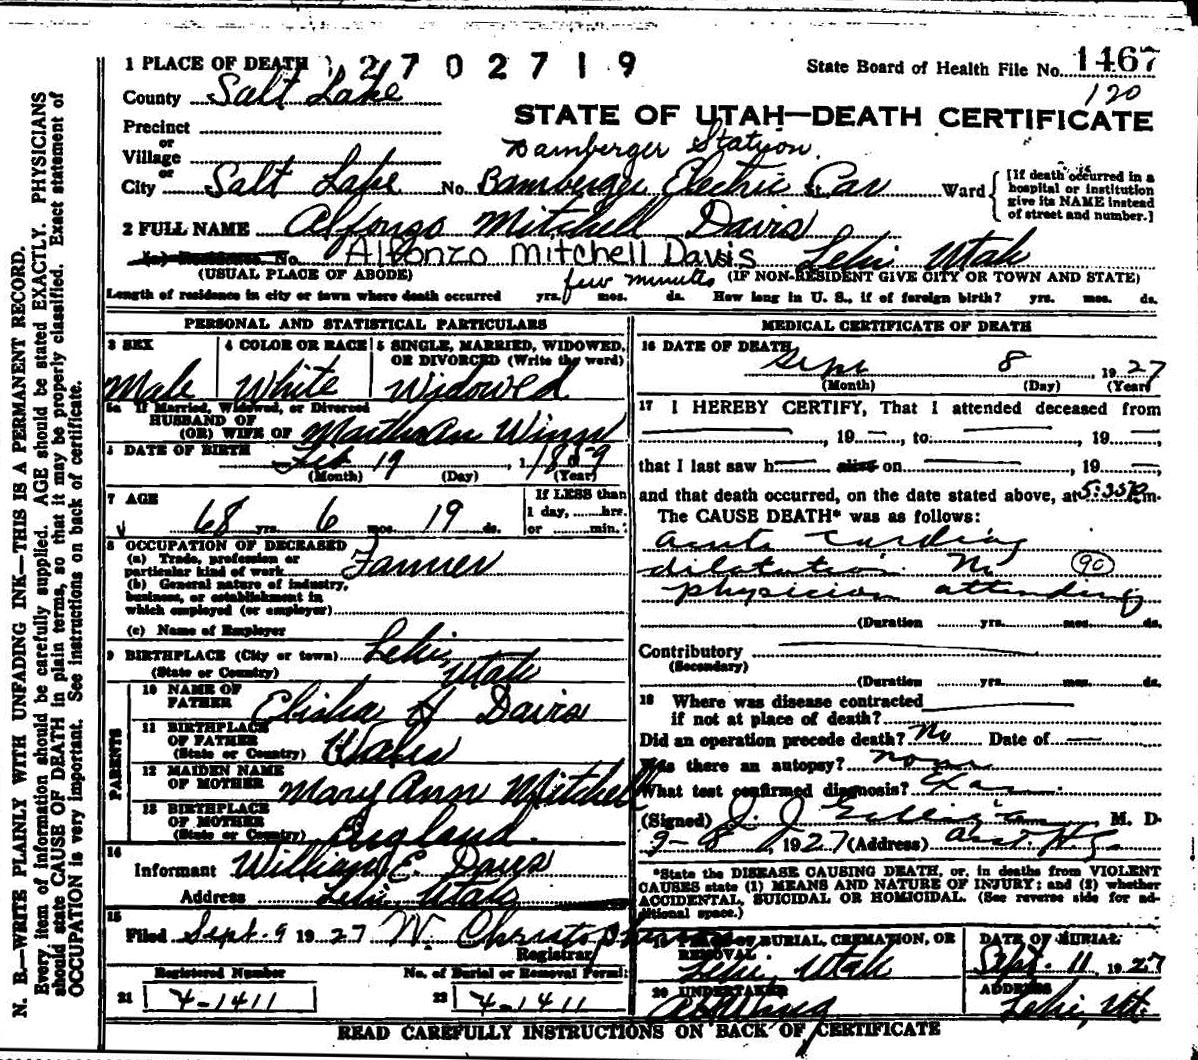 1 PLACE OF DEATH 2702719
State Board of Health File No. 1467
County Salt Lake
120
STATE OF UTAH—DEATH CERTIFICATE
Precinct
or
Village
Bamberger Station
or
City Salt Lake No. Bamberger Electric St. Car Ward
[If death occurred in a
hospital or institution
give its NAME instead
of street and number.]
2 FULL NAME Alfonzo Mitchell Davis
(a) Residence No. Alfonzo Mitchell Davis Lehi Utah
(USUAL PLACE OF ABODE) (IF NON-RESIDENT GIVE CITY OR TOWN AND STATE)
few minutes
Length of residence in city or town where death occurred yrs. mos. ds. How long in U. S., if of foreign birth? yrs. mos. ds.
PERSONAL AND STATISTICAL PARTICULARS
3 SEX
Male
4 COLOR OR RACE
White
5 SINGLE, MARRIED, WIDOWED,
OR DIVORCED (Write the word)
Widowed
5a If Married, Widowed, or Divorced
HUSBAND OF
(OR) WIFE OF Martha An Winn
6 DATE OF BIRTH
Feb 19, 1859
(Month) (Day) (Year)
7 AGE
68 yrs. 6 mos. 19 ds.
If LESS than
1 day, hrs.
or min.
8 OCCUPATION OF DECEASED
(a) Trade, profession or
particular kind of work Farmer
(b) General nature of industry,
business, or establishment in
which employed (or employer)
(c) Name of Employer
9 BIRTHPLACE (City or town) Lehi,
(State or Country) Utah
PARENTS
10 NAME OF
FATHER Elisha H Davis
11 BIRTHPLACE
OF FATHER
(State or Country) Wales
12 MAIDEN NAME
OF MOTHER Mary Ann Mitchell
13 BIRTHPLACE
OF MOTHER
(State or Country) England.
14
Informant William E. Davis
Address Lehi, Utah
15
Filed Sept. 9 1927 W.
Registrar
Registered Number
21 4-1411
No. of Burial or Removal Permit
22 4-1411
MEDICAL CERTIFICATE OF DEATH
16 DATE OF DEATH
Sept 8 1927
(Month) (Day) (Year)
17 I HEREBY CERTIFY, That I attended deceased from
, 19 , to , 19 ,
that I last saw h alive on , 19 ,
and that death occurred, on the date stated above, at 5:35 P.m.
The CAUSE DEATH* was as follows:
Acute Cardiac
dilatation. No 90
physician attending
(Duration yrs. mos. ds.
Contributory
(Secondary)
(Duration yrs. mos. ds.
18 Where was disease contracted
if not at place of death?
Did an operation precede death? No Date of
Was there an autopsy? None
What test confirmed diagnosis?
(Signed) J. J. M. D.
9-8 1927 (Address)
*State the DISEASE CAUSING DEATH, or, in deaths from VIOLENT
CAUSES state (1) MEANS AND NATURE OF INJURY; and (2) whether
ACCIDENTAL, SUICIDAL OR HOMICIDAL. (See reverse side for ad-
ditional space.)
19 PLACE OF BURIAL, CREMATION, OR
REMOVAL
Lehi, Utah
DATE OF BURIAL
Sept. 11 1927
20 UNDERTAKER
ADDRESS
Lehi, Ut.
READ CAREFULLY INSTRUCTIONS ON BACK OF CERTIFICATE
N. B.—WRITE PLAINLY WITH UNFADING INK—THIS IS A PERMANENT RECORD.
Every item of information should be carefully supplied. AGE should be stated EXACTLY. PHYSICIANS
should state CAUSE OF DEATH in plain terms, so that it may be properly classified. Exact statement of
OCCUPATION is very important. See instructions on back of certificate.